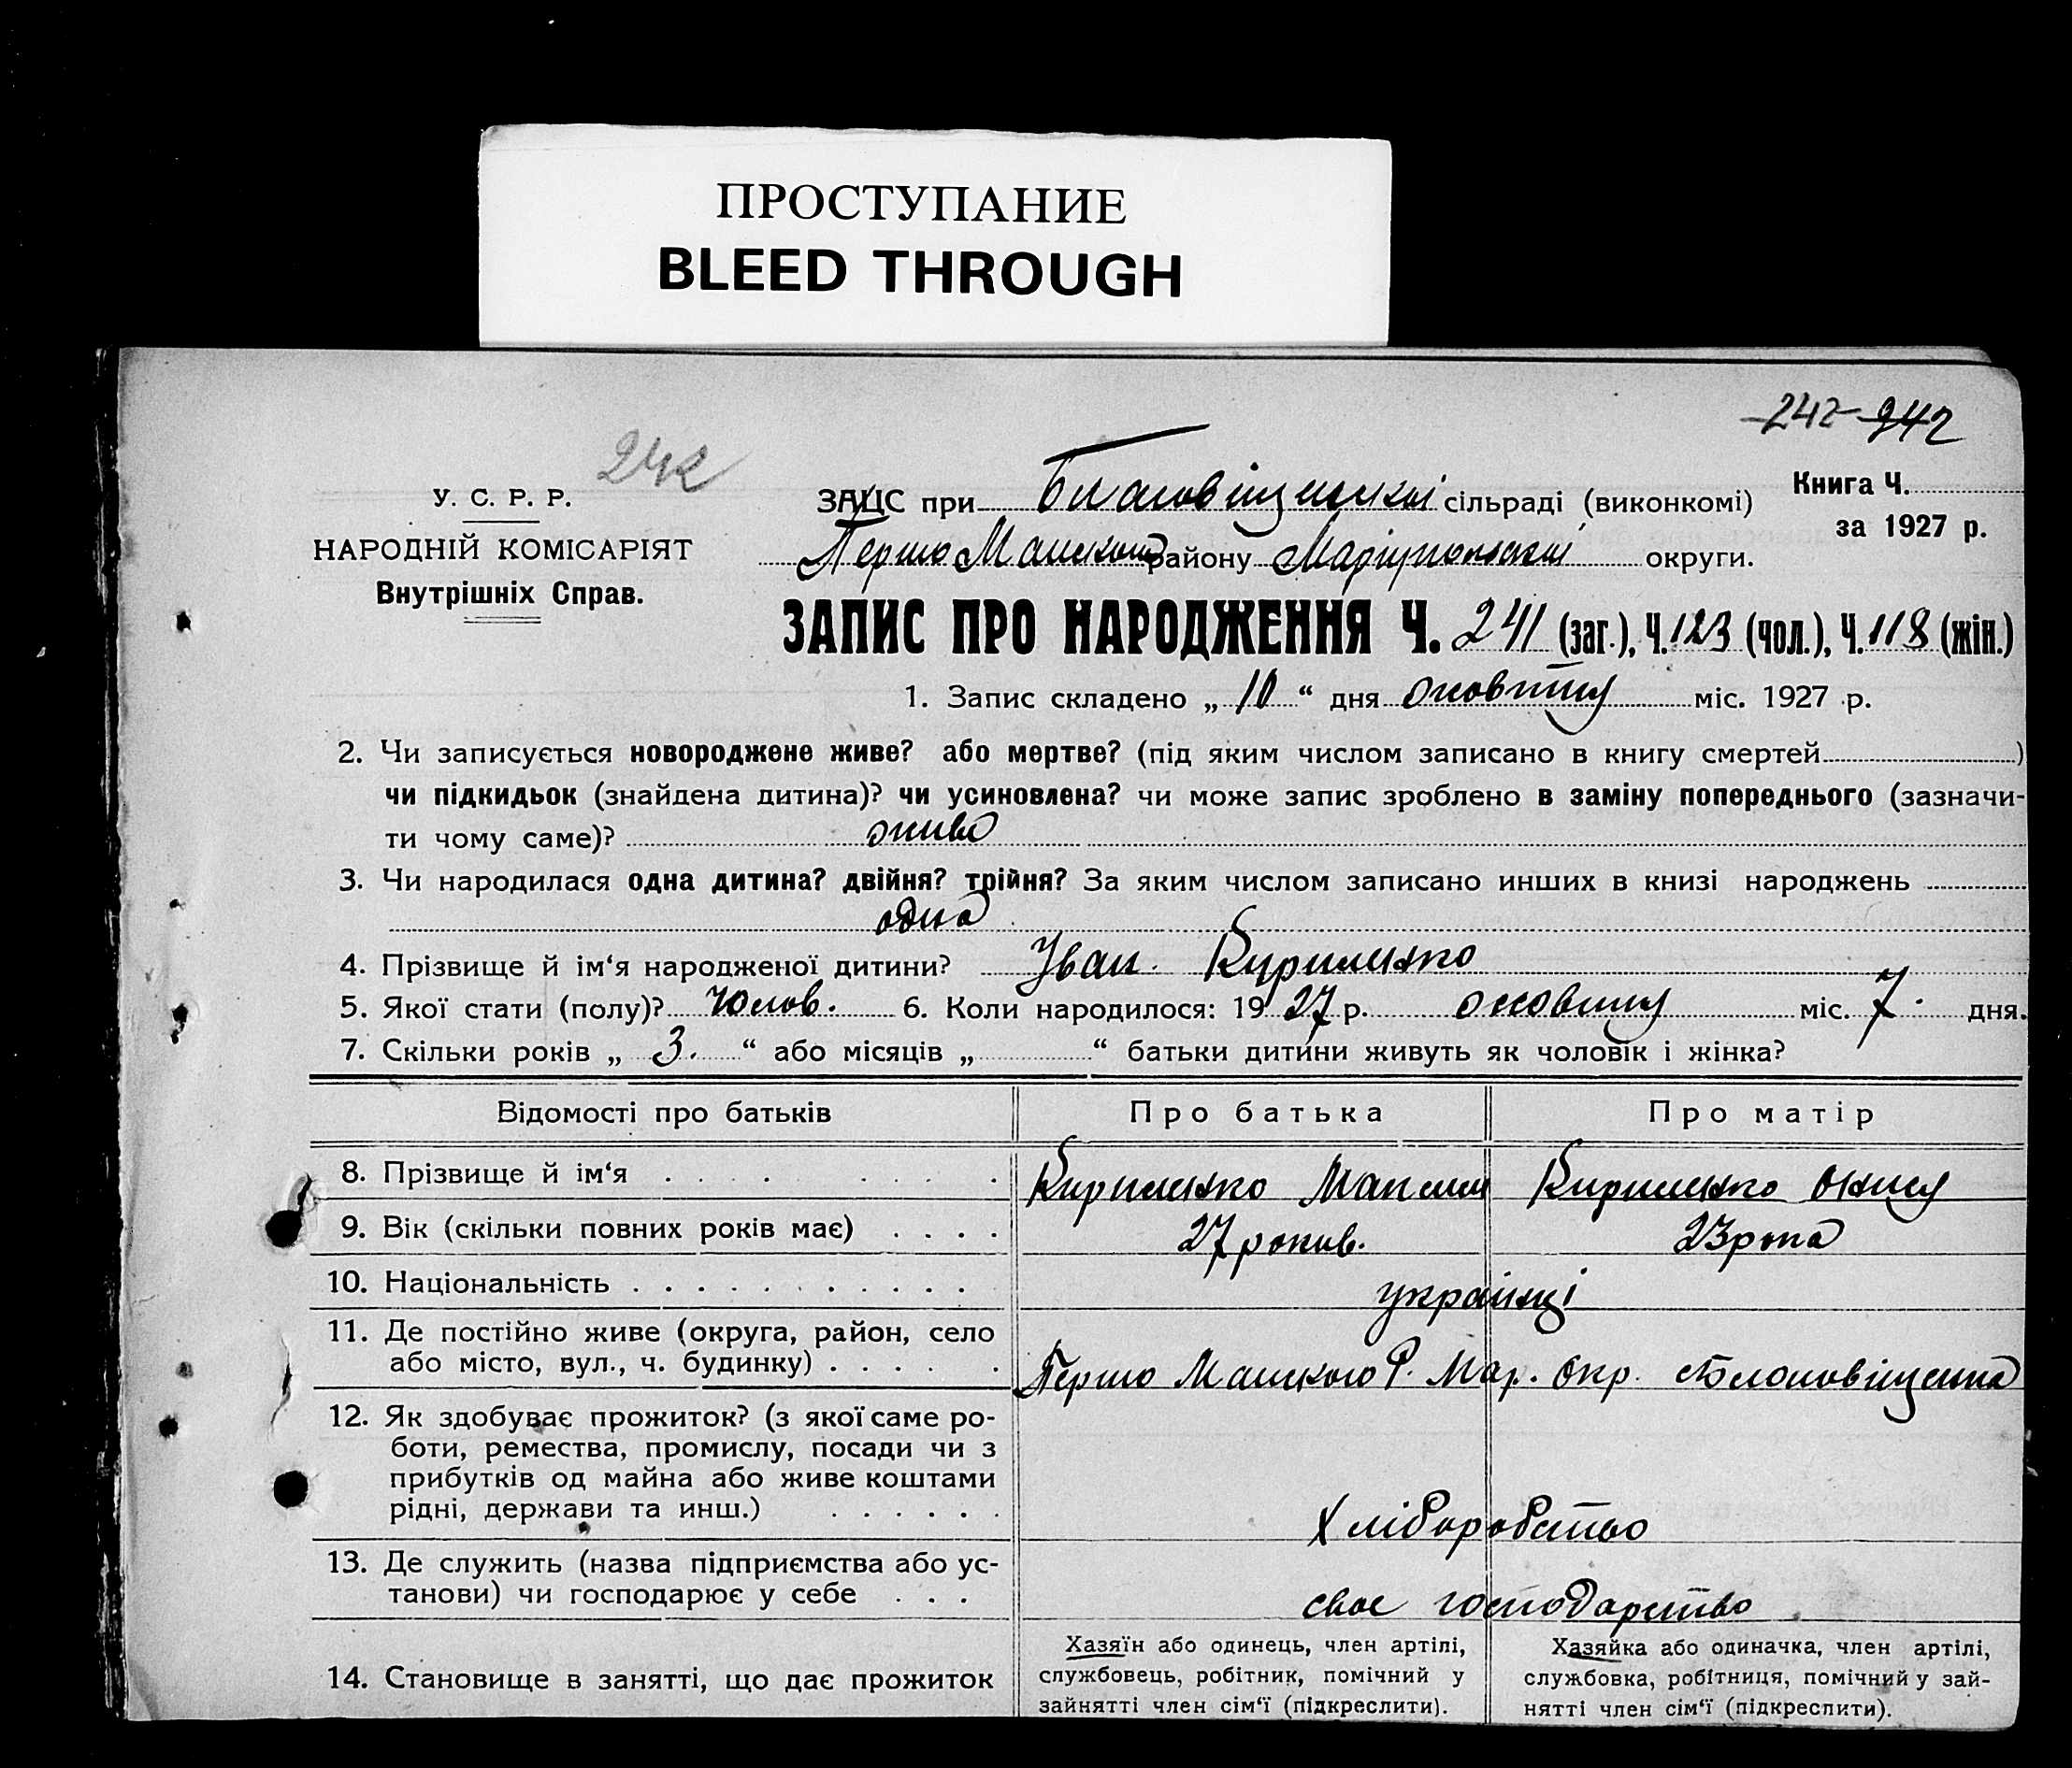 ПРОСТУПАНИЕ
BLEED THROUGH
242 942
242
У. С. Р. Р.
НАРОДНІЙ КОМІСАРІЯТ
Внутрішніх Справ.
ЗАЦС при Благовіщенскій сільраді (виконкомі)
Книга Ч.
за 1927 р.
Першо Майского району Маріупольскої округи.
ЗАПИС ПРО НАРОДЖЕННЯ Ч. 241 (заг.), Ч. 123 (чол.), Ч. 118 (жін.)
1. Запис складено „ 10 “ дня жовтню міс. 1927 р.
2. Чи записується новороджене живе? або мертве? (під яким числом записано в книгу смертей )
чи підкидьок (знайдена дитина)? чи усиновлена? чи може запис зроблено в заміну попереднього (зазначи-
ти чому саме)? живо
3. Чи народилася одна дитина? двійня? трійня? За яким числом записано инших в книзі народжень
одна
4. Прізвище й ім‘я народженої дитини? Іван Кириленко
5. Якої стати (полу)? чолов. 6. Коли народилося: 19 27 р. жовтню міс. 7. дня.
7. Скільки років „ 3. “ або місяців „ “ батьки дитини живуть як чоловік і жінка?
Відомості про батьків Про батька Про матір
8. Прізвище й ім‘я Кириленко Максим Кириленко
9. Вік (скільки повних років має) 27 років. 23 рока
10. Національність українці
11. Де постійно живе (округа, район, село
або місто, вул., ч. будинку) Першо Майского Р. Мар. Окр.
12. Як здобуває прожиток? (з якої саме ро-
боти, ремества, промислу, посади чи з
прибутків од майна або живе коштами
рідні, держави та инш.) Хліборобство
13. Де служить (назва підприємства або ус-
танови) чи господарює у себе своє господарство
14. Становище в занятті, що дає прожиток
Хазяїн або одинець, член артілі,
службовець, робітник, помічний у
зайнятті член сім‘ї (підкреслити).
Хазяйка або одиначка, член артілі,
службовка, робітниця, помічний у зай-
нятті член сім‘ї (підкреслити).